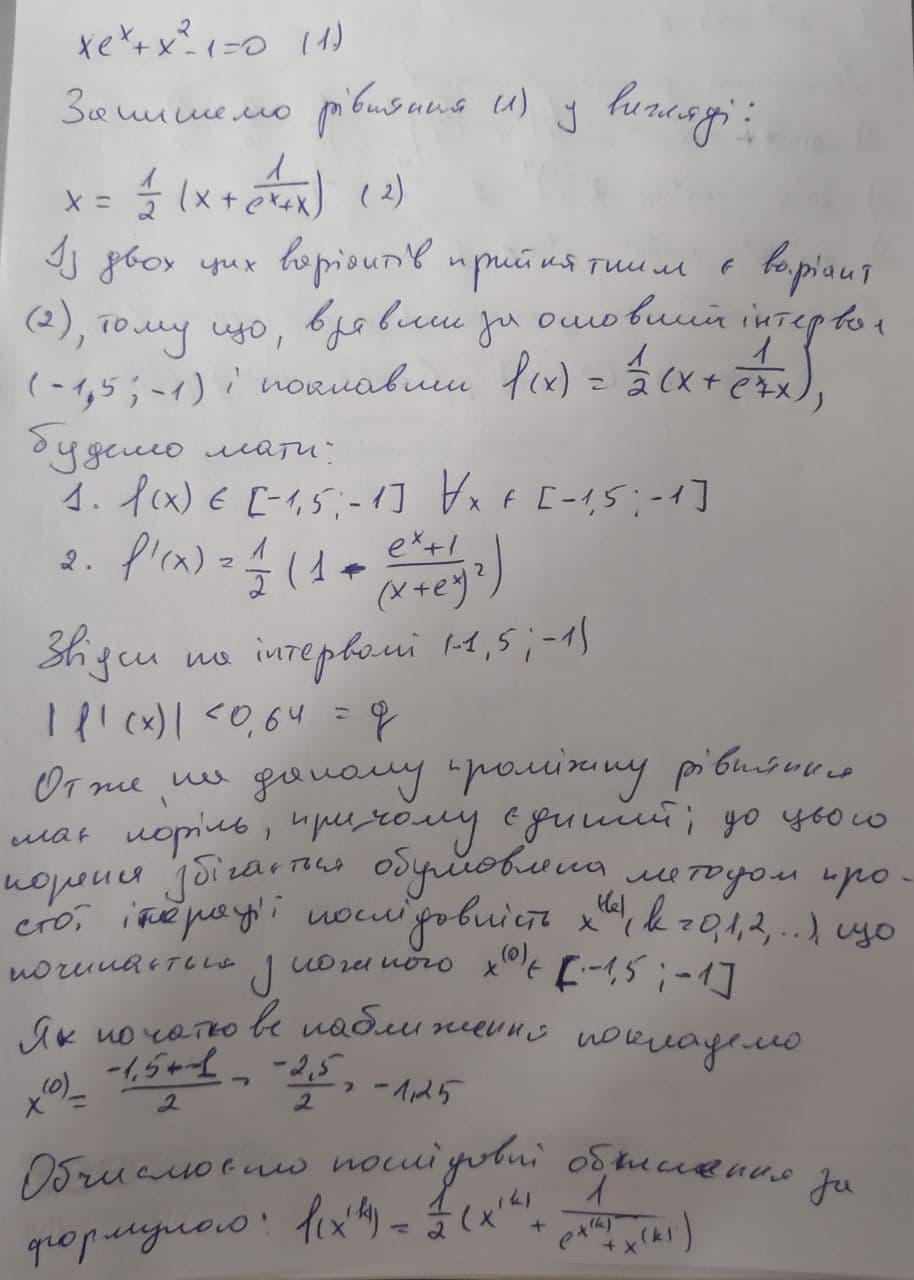 xeˣ + x² - 1 = 0 (1)
Запишемо рівняння (1) у вигляді:
x = 1/2 (x + 1/(eˣ+x)) (2)
Із двох цих варіантів прийнятним є варіант
(2), тому що, взявши за основний інтервал
(-1,5; -1) і поклавши f(x) = 1/2 (x + 1/(eˣ+x)),
будемо мати:
1. f(x) ∈ [-1,5; -1] ∀x ∈ [-1,5; -1]
2. f'(x) = 1/2 (1 - (eˣ+1)/(x+eˣ)²)
Звідси на інтервалі (-1,5; -1)
|f'(x)| < 0,64 = q
Отже, на даному проміжку рівняння
має корінь, причому єдиний; до цього
кореня збігається обумовлена методом про-
стої ітерації послідовність x⁽ᵏ⁾, (k = 0,1,2,...), що
починається з кожного x⁽⁰⁾ ∈ [-1,5; -1]
Як початкове наближення покладемо
x⁽⁰⁾ = (-1,5+-1)/2 = -2,5/2 = -1,25
Обчислюємо послідовні обчислення за
формулою: f(x⁽ᵏ⁾) = 1/2 (x⁽ᵏ⁾ + 1/(e^x⁽ᵏ⁾ + x⁽ᵏ⁾))